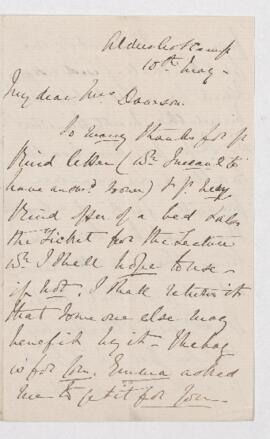 Aldershot Camp
10th May -
My dear Mrs Dawson.
So many thanks for yr
kind letter (wh I meant to
have answd sooner) & yr very
kind offer of a bed & also
the Ticket for the Lecture
wh I shall hope to use -
if not, I shall return it
that some one else may
benefit by it - The bag
is for you. Emma asked
me to get it for you -